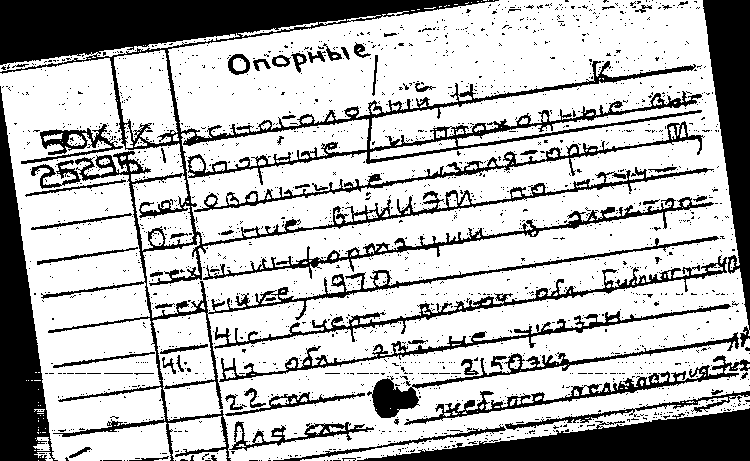 Опорные
50К Красноголовый, Н К
25295 Опорные и проходные вы-
соковольтные изоляторы. М,
Отд-ние ВНИИЭМ по науч-
техн. информации в электро-
технике, 1970.
41с. с черт., включ. обл. Библиогр: с40
41: На обл. авт. не указан.
22см. 2150экз
Для слу- жебного пользования